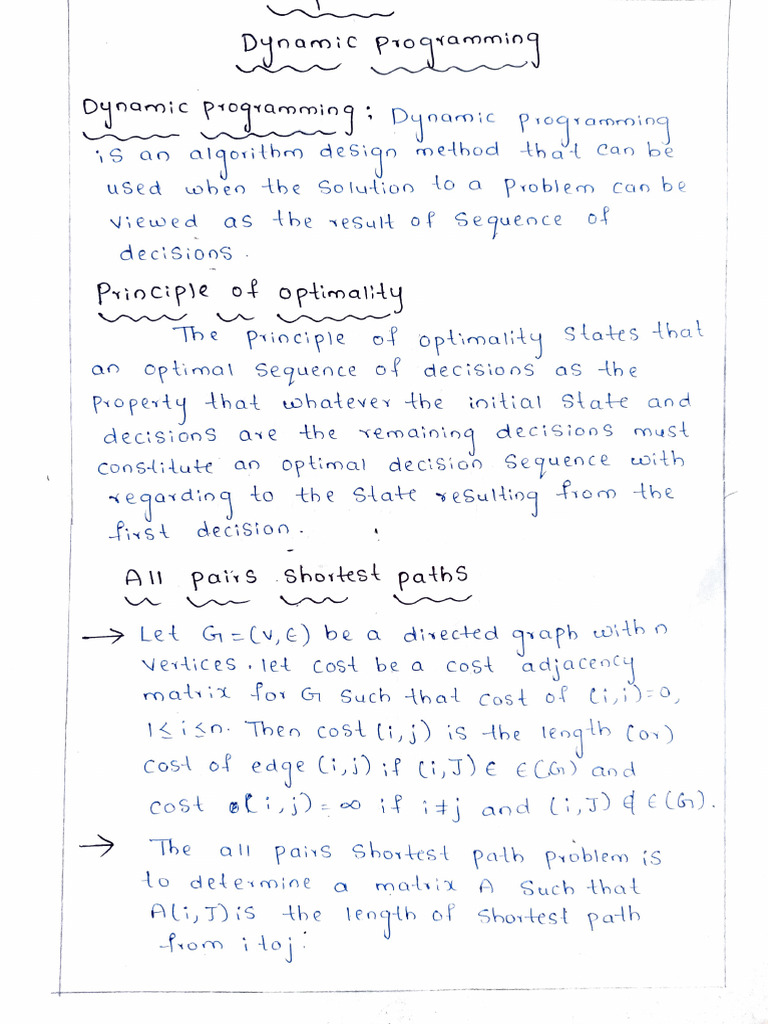 Dynamic programming
Dynamic programming: Dynamic programming
is an algorithm design method that can be
used when the solution to a problem can be
viewed as the result of sequence of
decisions.
Principle of optimality
The principle of optimality states that
an optimal sequence of decisions as the
property that whatever the initial state and
decisions are the remaining decisions must
constitute an optimal decision sequence with
regarding to the state resulting from the
first decision.
All pairs shortest paths
→ Let G=(V,E) be a directed graph with n
vertices. let cost be a cost adjacency
matrix for G such that cost of (i,i)=0,
1≤i≤n. Then cost (i,j) is the length (or)
cost of edge (i,j) if (i,J) ∈ E(G) and
cost (i,j)=∞ if i≠j and (i,J) ∉ E(G).
→ The all pairs shortest path problem is
to determine a matrix A such that
A(i,J) is the length of shortest path
from i to j.